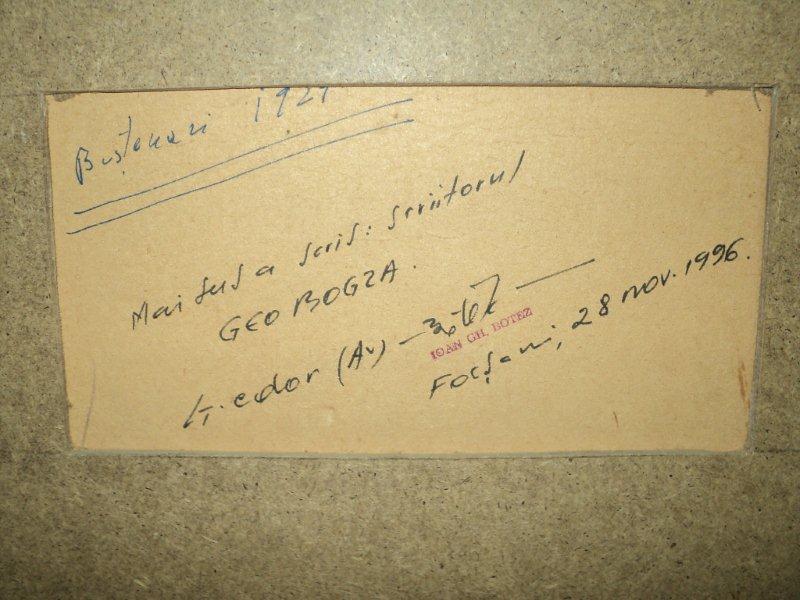 Buștenari 1929
Mai sus a scris: scriitorul
GEO BOGZA.
(Av)
IOAN GH. BOTEZ
Focșani, 28 nov. 1996.